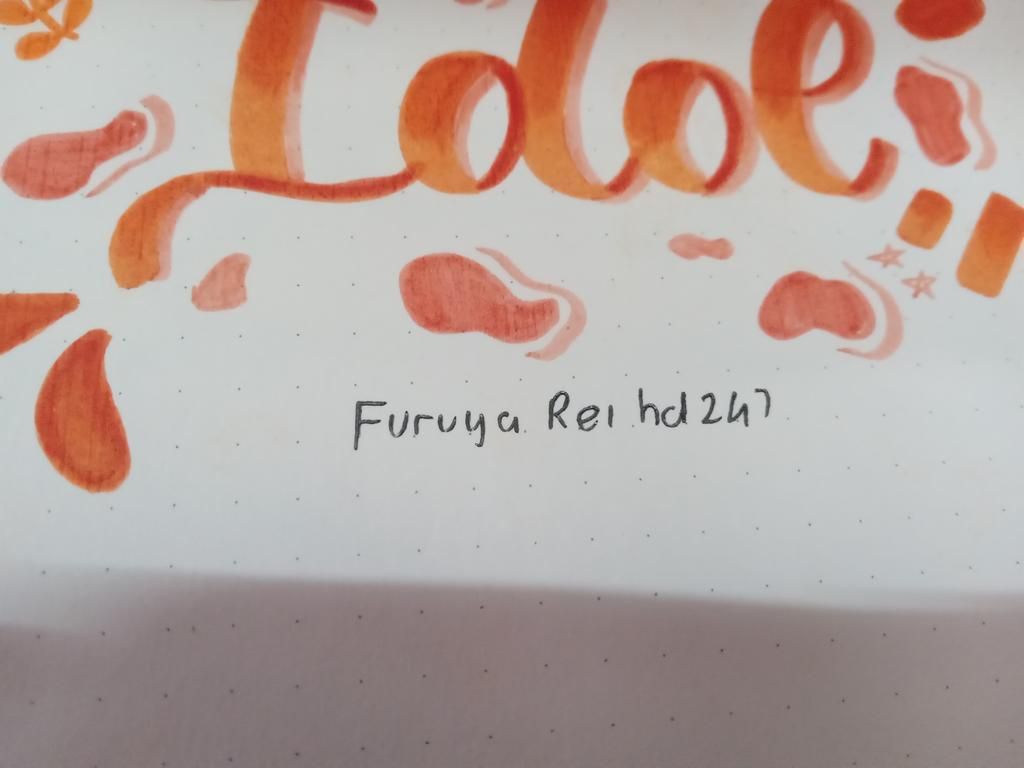 Idol
Furuya Rei hd247